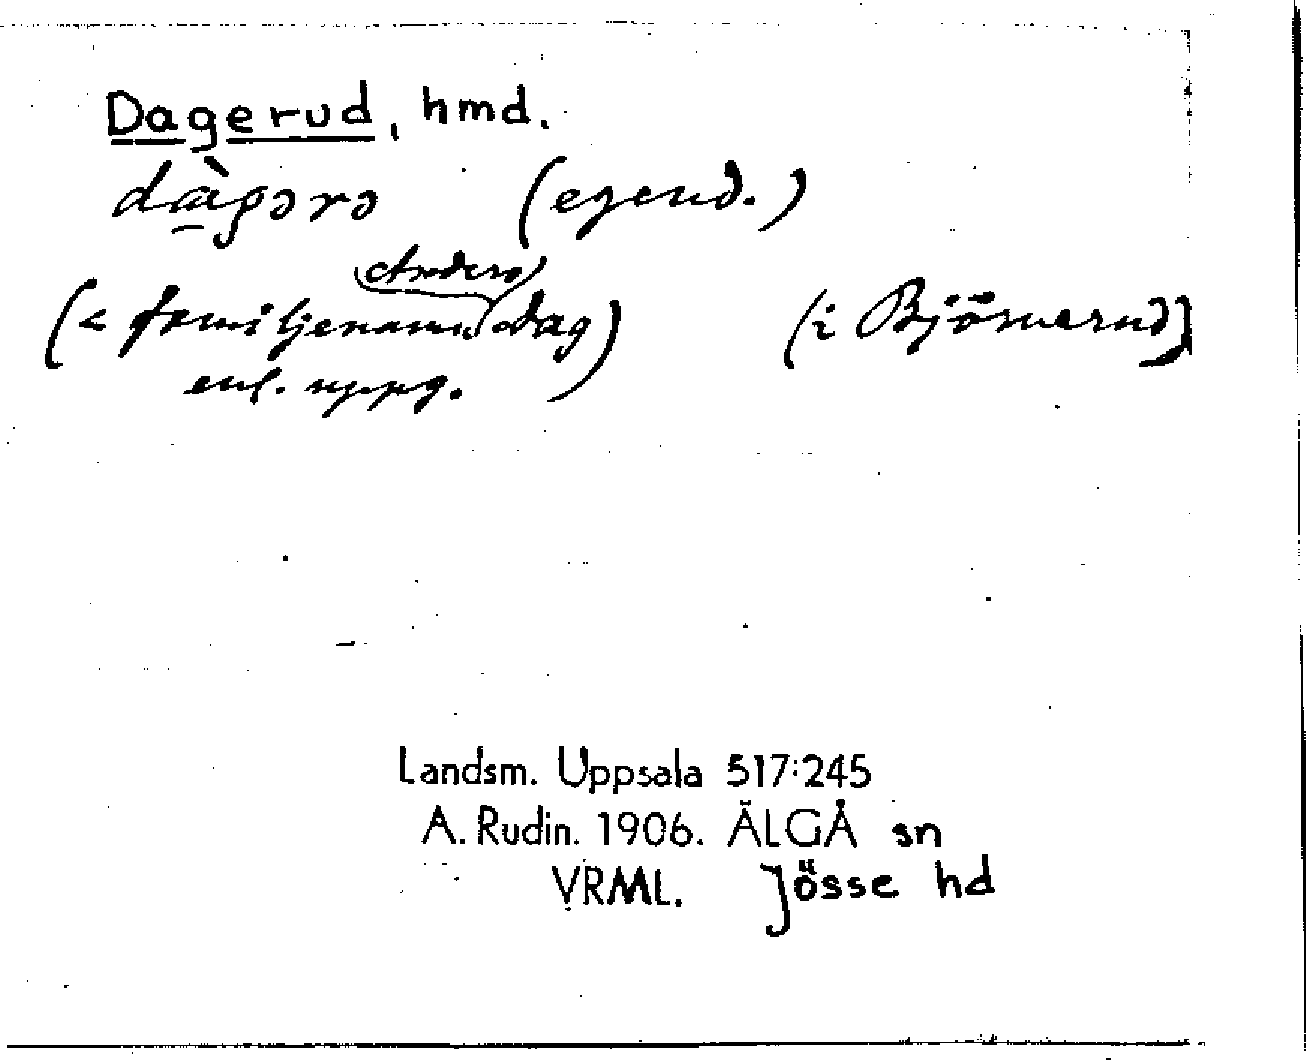 Dagerud, hmd.
dàgərə (egend.)
Anders
(< familjenamn Dag) (i Björnerud)
enl. uppg.
Landsm. Uppsala 517:245
A. Rudin. 1906. ÄLGÅ sn
VRML. Jösse hd